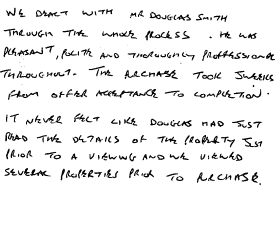 WE DEALT WITH MR DOUGLAS SMITH
THROUGH THE WHOLE PROCESS. HE WAS
PLEASANT, POLITE AND THOROUGHLY PROFFESSIONAL
THROUGHOUT. THE PURCHASE TOOK 5 WEEKS
FROM OFFER ACCEPTANCE TO COMPLETION.
IT NEVER FELT LIKE DOUGLAS HAD JUST
READ THE DETAILS OF THE PROPERTY JUST
PRIOR TO A VIEWING AND WE VIEWED
SEVERAL PROPERTIES PRIOR TO PURCHASE.